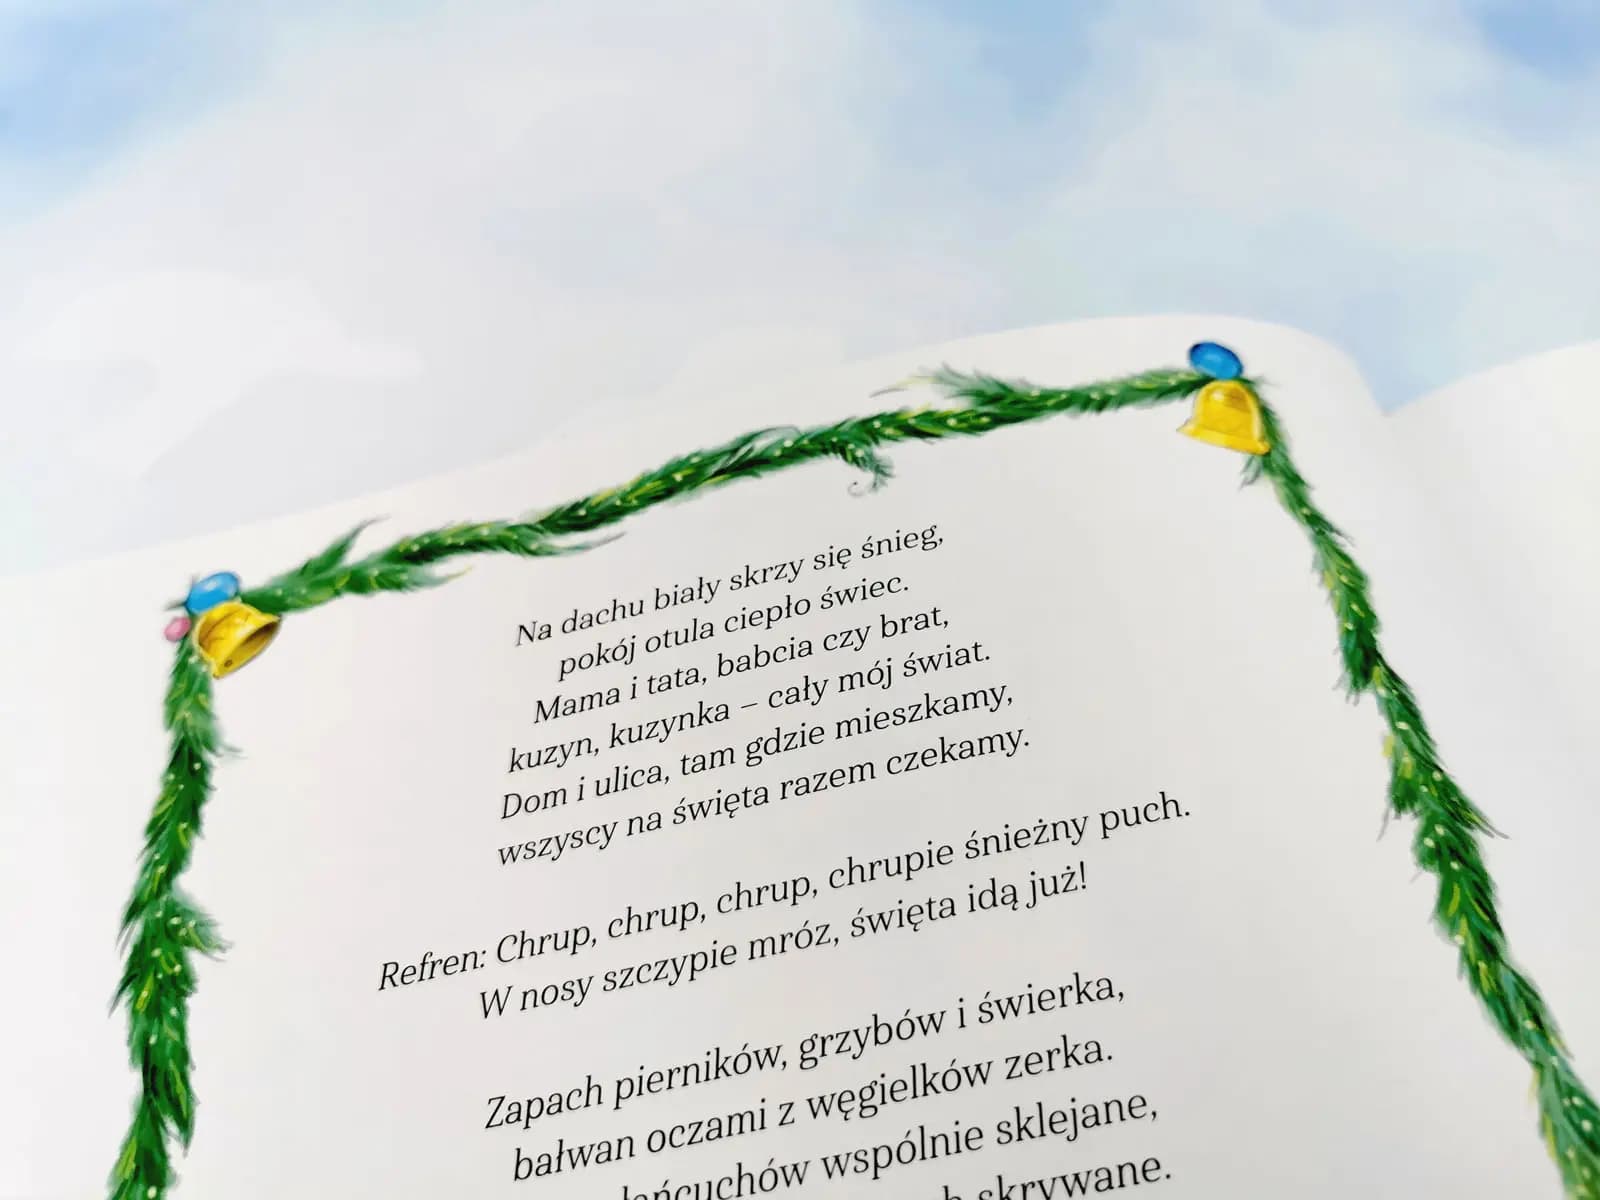 Na dachu biały skrzy się śnieg,
pokój otula ciepło świec.
Mama i tata, babcia czy brat,
kuzyn, kuzynka – cały mój świat.
Dom i ulica, tam gdzie mieszkamy,
wszyscy na święta razem czekamy.
Refren: Chrup, chrup, chrup, chrupie śnieżny puch.
W nosy szczypie mróz, święta idą już!
Zapach pierników, grzybów i świerka,
bałwan oczami z węgielków zerka.
wspólnie sklejane,
skrywane.